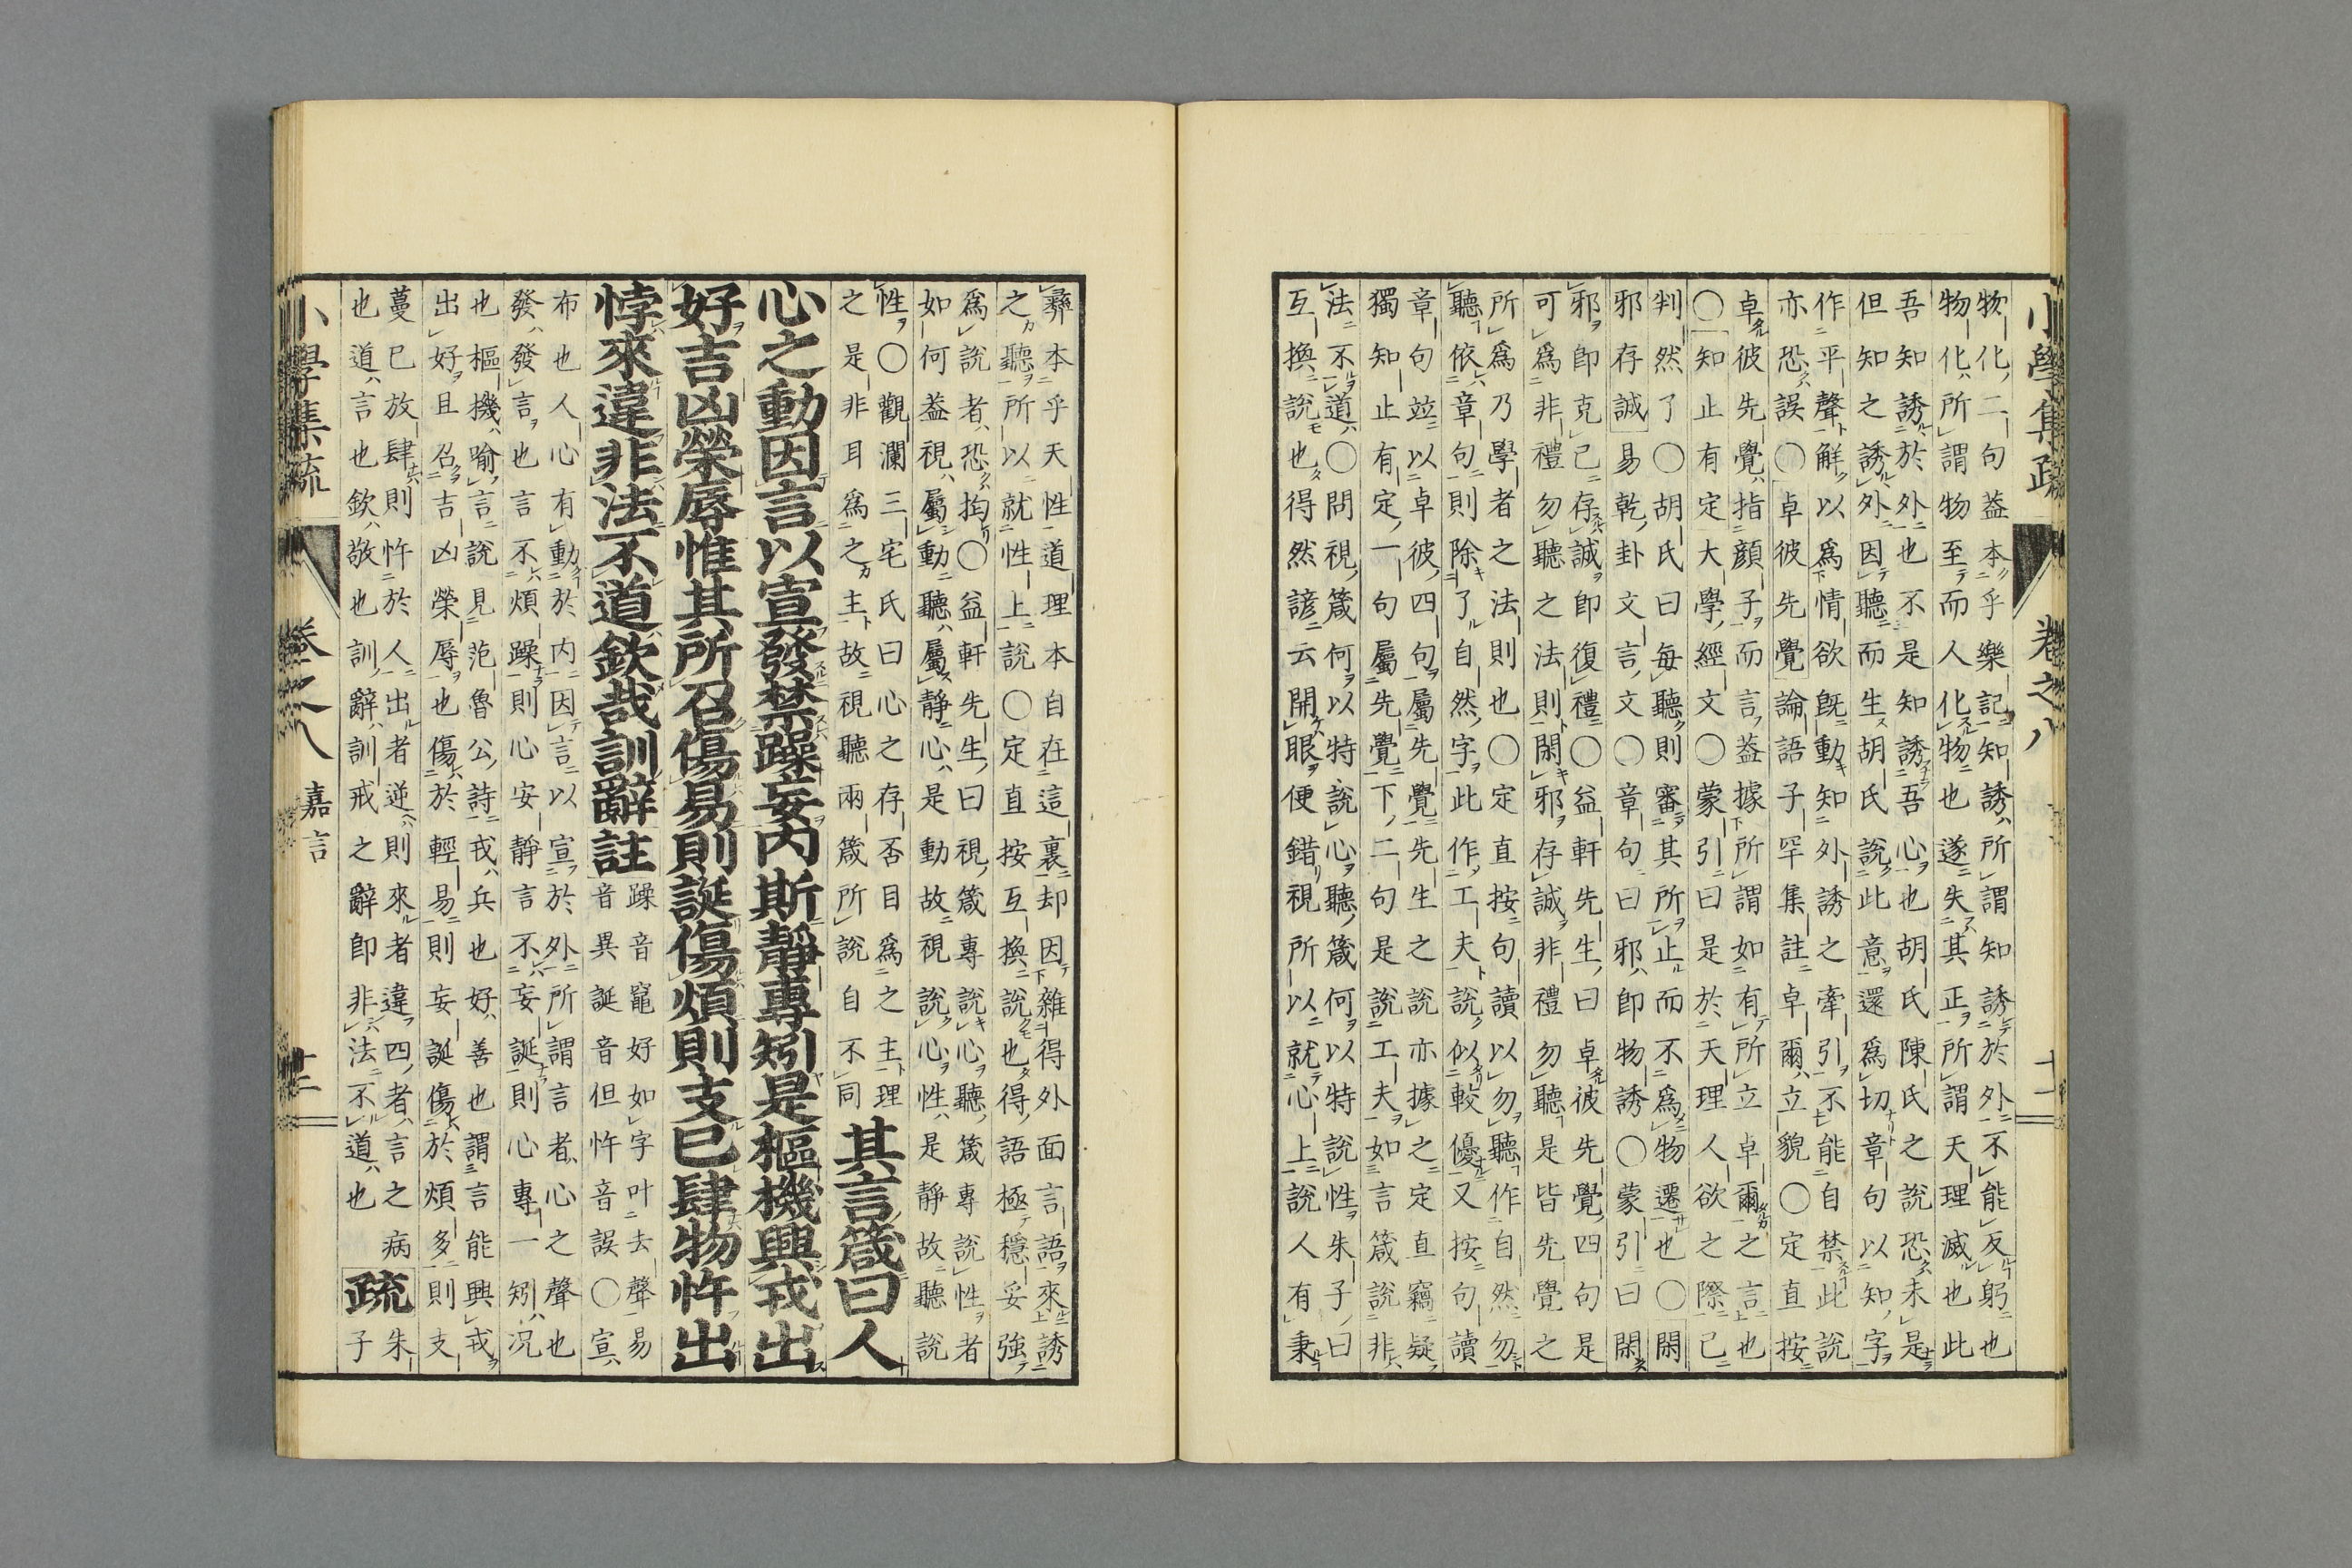 小學集疏 卷之八 十一
物化二句蓋本乎樂記知誘所謂知誘於外不能反躬也
物化所謂物至而人化物也遂失其正所謂天理滅也此
吾知誘於外也不是知誘吾心也胡氏陳氏之說恐未是
但知之誘外因聽而生胡氏說此意還爲切章句以知字
作平聲解以爲情欲旣動知外誘之牽引不能自禁此說
亦恐誤〇卓彼先覺論語子罕集註卓爾立貌〇定直按
卓彼先覺指顔子而言蓋據所謂如有所立卓爾之言也
〇知止有定大學經文〇蒙引曰是於天理人欲之際已
判然了〇胡氏曰每聽則審其所止而不爲物遷也〇閑
邪存誠易乾卦文言文〇章句曰邪卽物誘〇蒙引曰閑
邪卽克己存誠卽復禮〇益軒先生曰卓彼先覺四句是
可爲非禮勿聽之法則閑邪存誠非禮勿聽是皆先覺之
所爲乃學者之法則也〇定直按句讀以勿聽作自然勿
聽依章句則除了自然字此作工夫說似較優又按句讀
章句竝以卓彼四句屬先覺先生之說亦據之定直竊疑
獨知止有定一句屬先覺下二句是說工夫如言箴說非
法不道〇問視箴何以特說心聽箴何以特說性朱子曰
互換說也得然諺云開眼便錯視所以就心上說人有秉
彝本乎天性道理本自在這裏却因雜得外面言語來誘
之聽所以就性上說〇定直按互換說也得語極穩妥強
爲說者恐拘〇益軒先生曰視箴專說心聽箴專說性者
如何蓋視屬動聽屬靜心是動故視說心性是靜故聽說
性〇觀瀾三宅氏曰心之存否目爲之主理
之是非耳爲之主故視聽兩箴所說自不同
其言箴曰人
心之動因言以宣發禁躁妄內斯靜專矧是樞機興戎出
好吉凶榮辱惟其所召傷易則誕傷煩則支已肆物忤出
悖來違非法不道欽哉訓辭註
躁音竈好如字叶去聲易
音異誕音但忤音誤〇宣
布也人心有動於内因言以宣於外所謂言者心之聲也
發發言也言不煩躁則心安靜言不妄誕則心專一矧况
也樞機喻言說見范魯公詩戎兵也好善也謂言能興戎
出好且召吉凶榮辱也傷於輕易則妄誕傷於煩多則支
蔓已放肆則忤於人出者逆則來者違四者言之病
也道言也欽敬也訓辭訓戒之辭卽非法不道也
疏
朱
子
小學集疏 卷之八 嘉言 十二